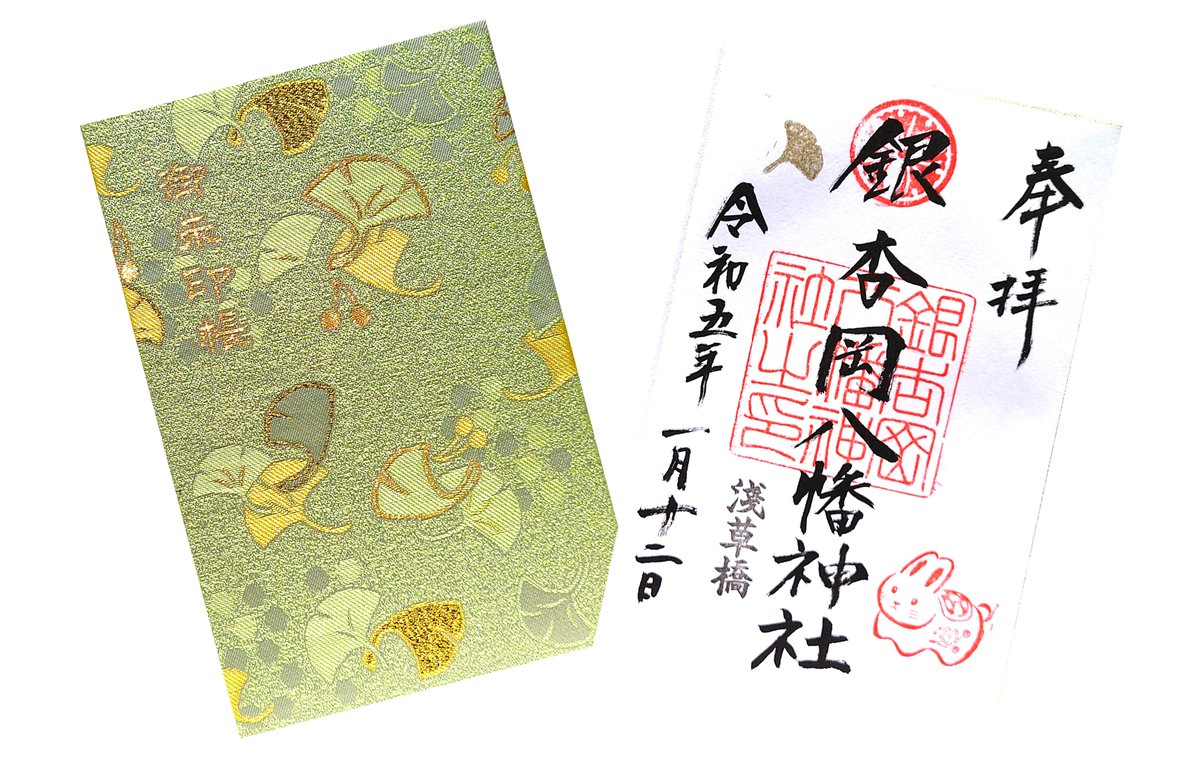 御朱印帳
奉拝
銀杏岡八幡神社
銀杏岡
八幡神
社之印
淺草橋
令和五年一月十二日